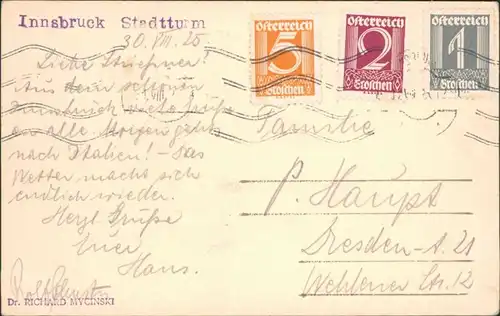 Innsbruck Stadtturm
30. VIII. 25
Österreich
5
Groschen
Österreich
2
Groschen
Österreich
1
Groschen
Liebe
Aus dem schönen
Innsbruck viele Grüße
an alle. Morgen geht's
nach Italien! - Das
Wetter macht sich
endlich wieder.
Herzl. Grüße
Euer
Hans.
Familie
P. Haupt
Dresden-A. 21
Wehlener Str. 12
Dr. RICHARD MYCINSKI